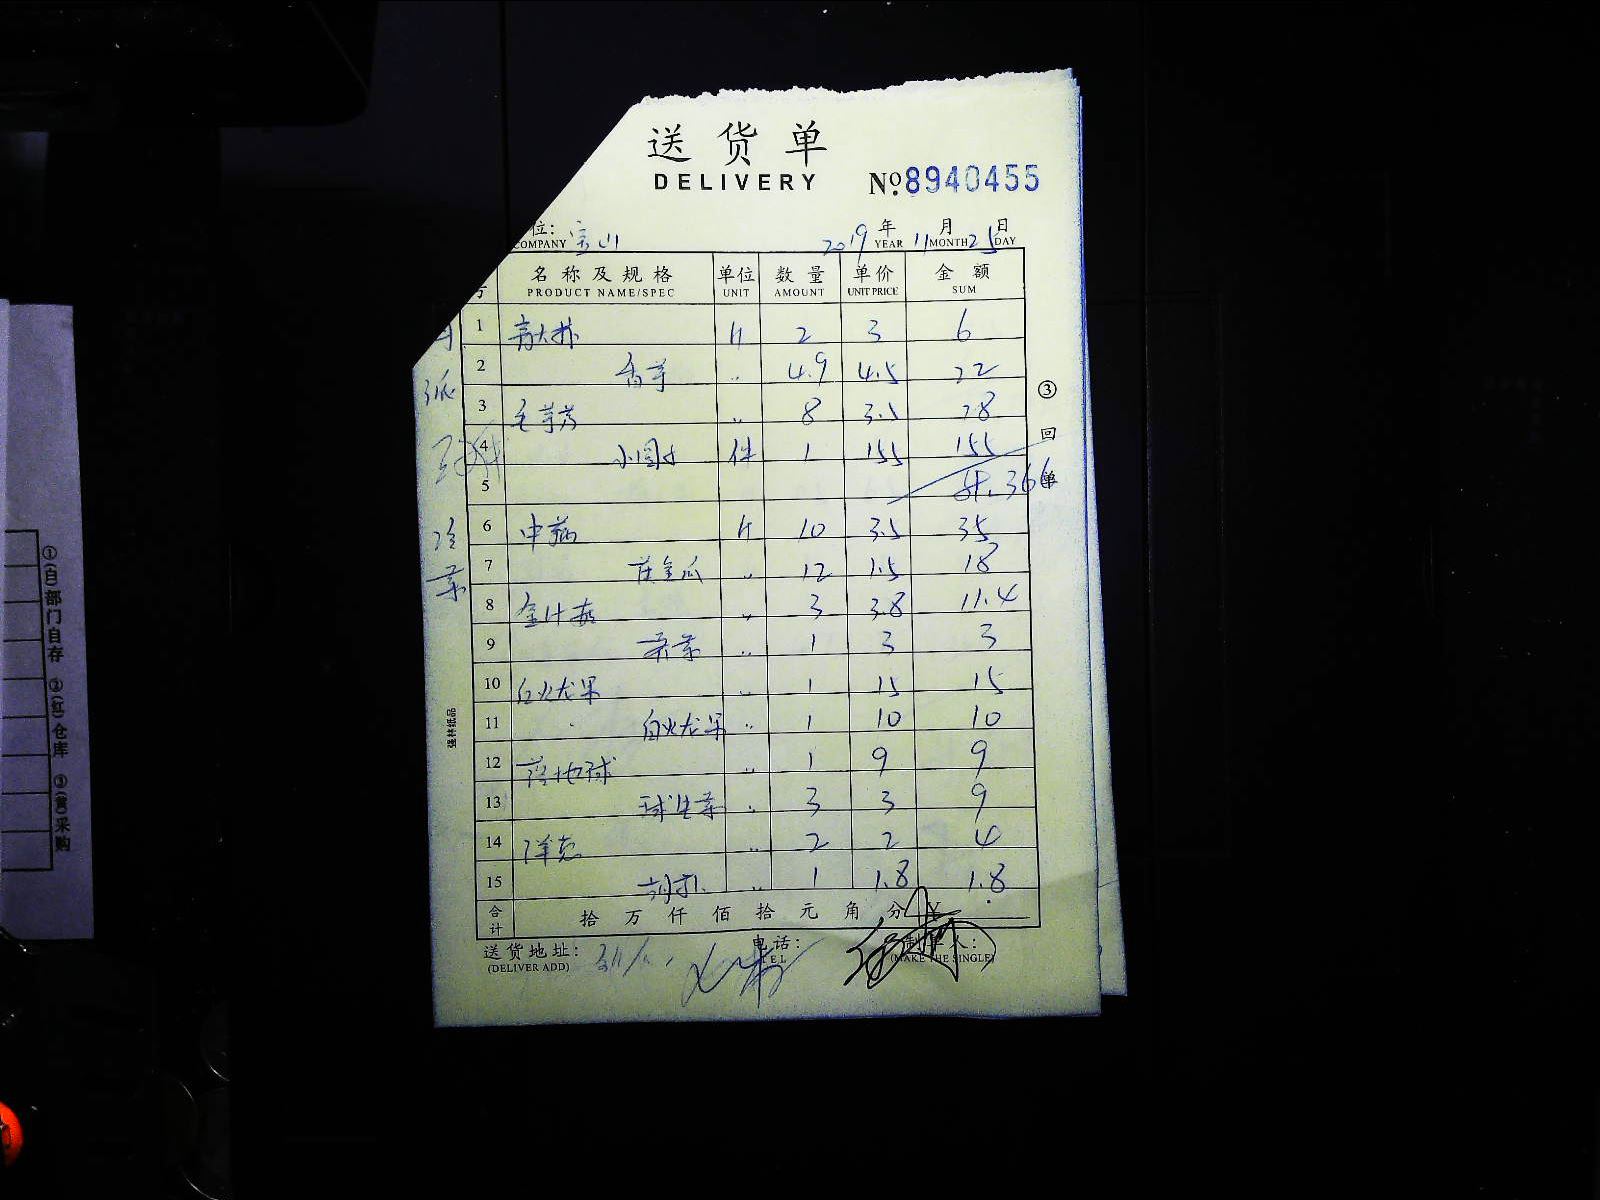 送货单
DELIVERY
№ 8940455
位: 宝山 2019年11月25日
COMPANY YEAR MONTH DAY
名称及规格 单位 数量 单价 金额
PRODUCT NAME/SPEC UNIT AMOUNT UNIT PRICE SUM
1 斤 2 3 6
2 香芋 〃 4.9 4.5 22
3 毛芋艿 〃 8 3.5 28
4 件 1 155 155
5 366
6 斤 10 3.5 35
7 黄金瓜 〃 12 1.5 18
8 金针菇 〃 3 3.8 11.4
9 〃 1 3 3
10 白火龙果 〃 1 15 15
11 白火龙果 〃 1 10 10
12 〃 1 9 9
13 球生菜 〃 3 3 9
14 洋葱 〃 2 2 4
15 〃 1 1.8 1.8
合计 拾 万 仟 佰 拾 元 角 分 ¥
送货地址: 电话: 制单人:
(DELIVER ADD) TEL (MAKE THE SINGLE)
③回单
冷菜
强林纸品
①(自)部门自存 ②(红)仓库 ③(黄)采购